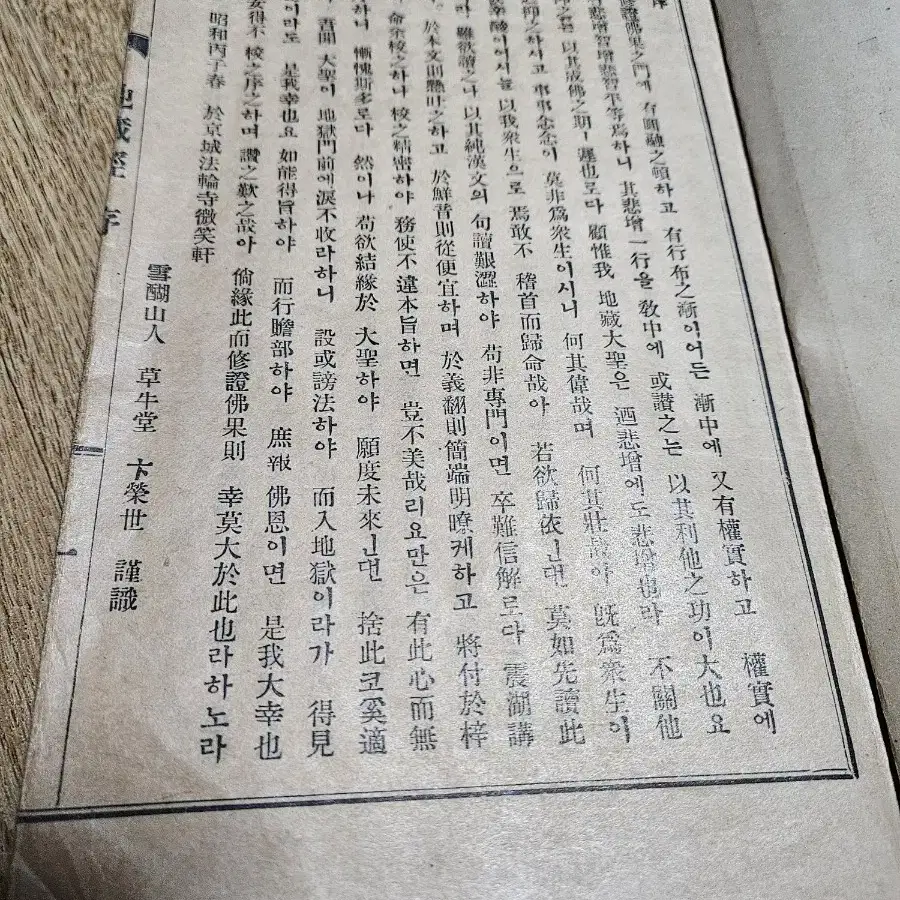 序
修證佛果之門에 有圓融之頓하고 有行布之漸이어든 漸中에 又有權實하고 權實에
悲增智增悲智平等焉하니 其悲增一行을 敎中에 或讚之는 以其利他之功이大也요
之는 以其成佛之期ㅣ遲也로다 顧惟我 地藏大聖은 迺悲增에도悲增也라 不關他
之하시고 事事念念이 莫非爲衆生이시니 何其偉哉며 何其壯哉아 旣爲衆生이
酸이어시늘 以我衆生으로 焉敢不 稽首而歸命哉아 若欲歸依인댄 莫如先讀此
雖欲讀之나 以其純漢文의 句讀艱澀하야 苟非專門이면 卒難信解로다 震湖講
於本文則懸吐之하고 於鮮昔則從便宜하며 於義翻則簡端明暸케하고 將付於梓
命余校之하나 校之精密하야 務使不違本旨하면 豈不美哉리요만은 有此心而無
하니 慚愧斯多로다 然이나 苟欲結緣於 大聖하야 願度未來인댄 捨此코奚適
吾聞 大聖이 地獄門前에淚不收라하니 設或謗法하야 而入地獄이라가 得見
이라도 是我幸也요 如能得旨하야 而行贍部하야 庶報 佛恩이면 是我大幸也
安得不 校之序之하며 讚之歎之哉아 倘緣此而修證佛果則 幸莫大於此也라하노라
昭和丙子春 於京城法輪寺微笑軒
雪醐山人 草牛堂 卞榮世 謹識
地藏經 序